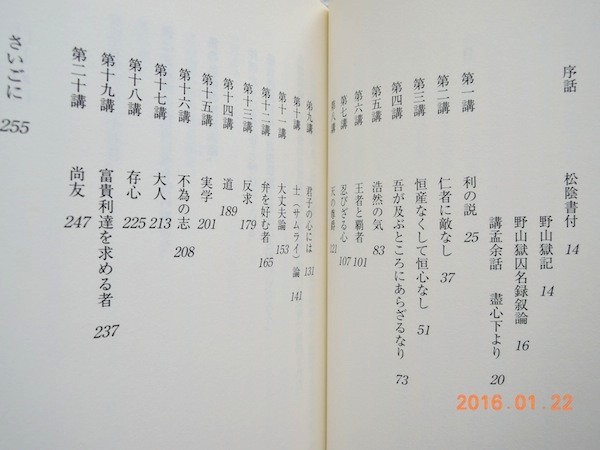 序話 松陰書付 14
野山獄記 14
野山獄囚名録叙論 16
講孟余話 盡心下より 20
第一講 利の説 25
第二講 仁者に敵なし 37
第三講 恒産なくして恒心なし 51
第四講 吾が及ぶところにあらざるなり 73
第五講 浩然の気 83
第六講 王者と覇者 101
第七講 忍びざる心 107
第八講 天の降将 121
第九講 君子の心には 131
第十講 士(サムライ)論 141
第十一講 大丈夫論 153
第十二講 弁を好む者 165
第十三講 反求 179
第十四講 道 189
第十五講 実学 201
第十六講 不為の志 208
第十七講 大人 213
第十八講 存心 225
第十九講 富貴利達を求める者 237
第二十講 尚友 247
さいごに 255
2016.01.22